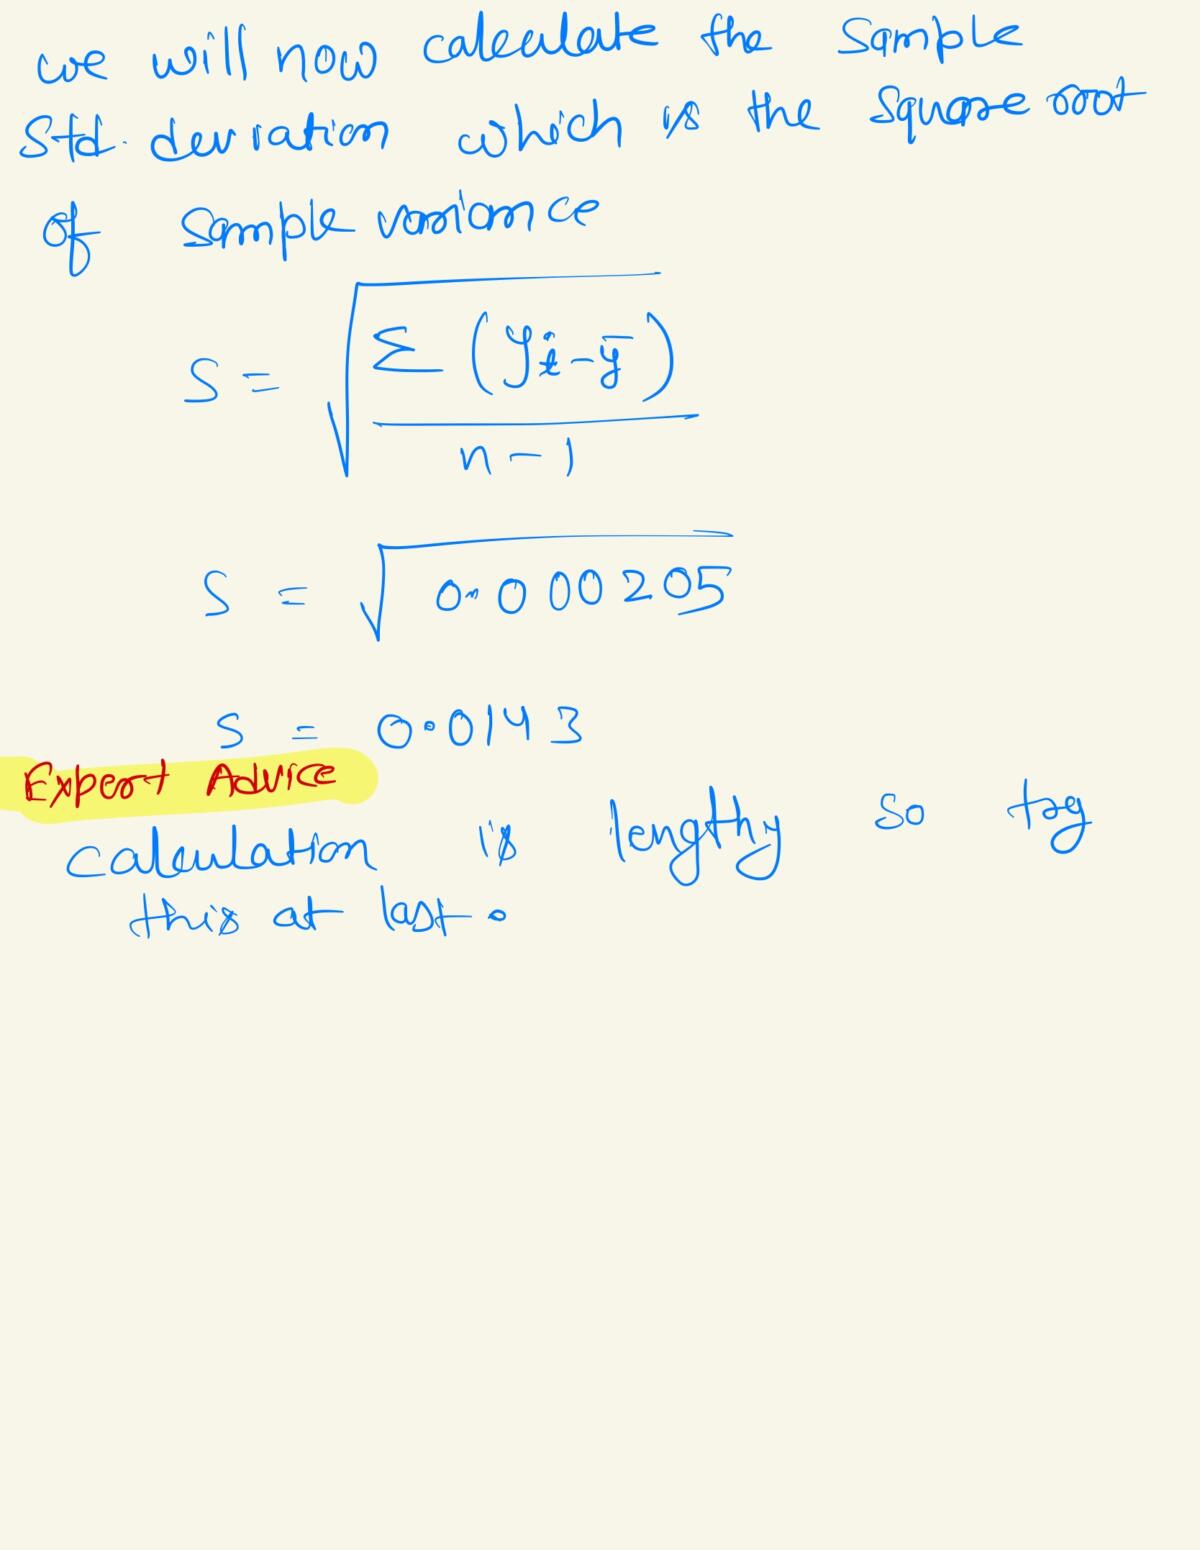 we will now calculate the Sample
Std. deviation which is the Square root
of Sample variance
S = √(Σ (yi-ȳ) / n-1)
S = √0.000205
S = 0.0143
Expert Advice
Calculation is lengthy so try
this at last.